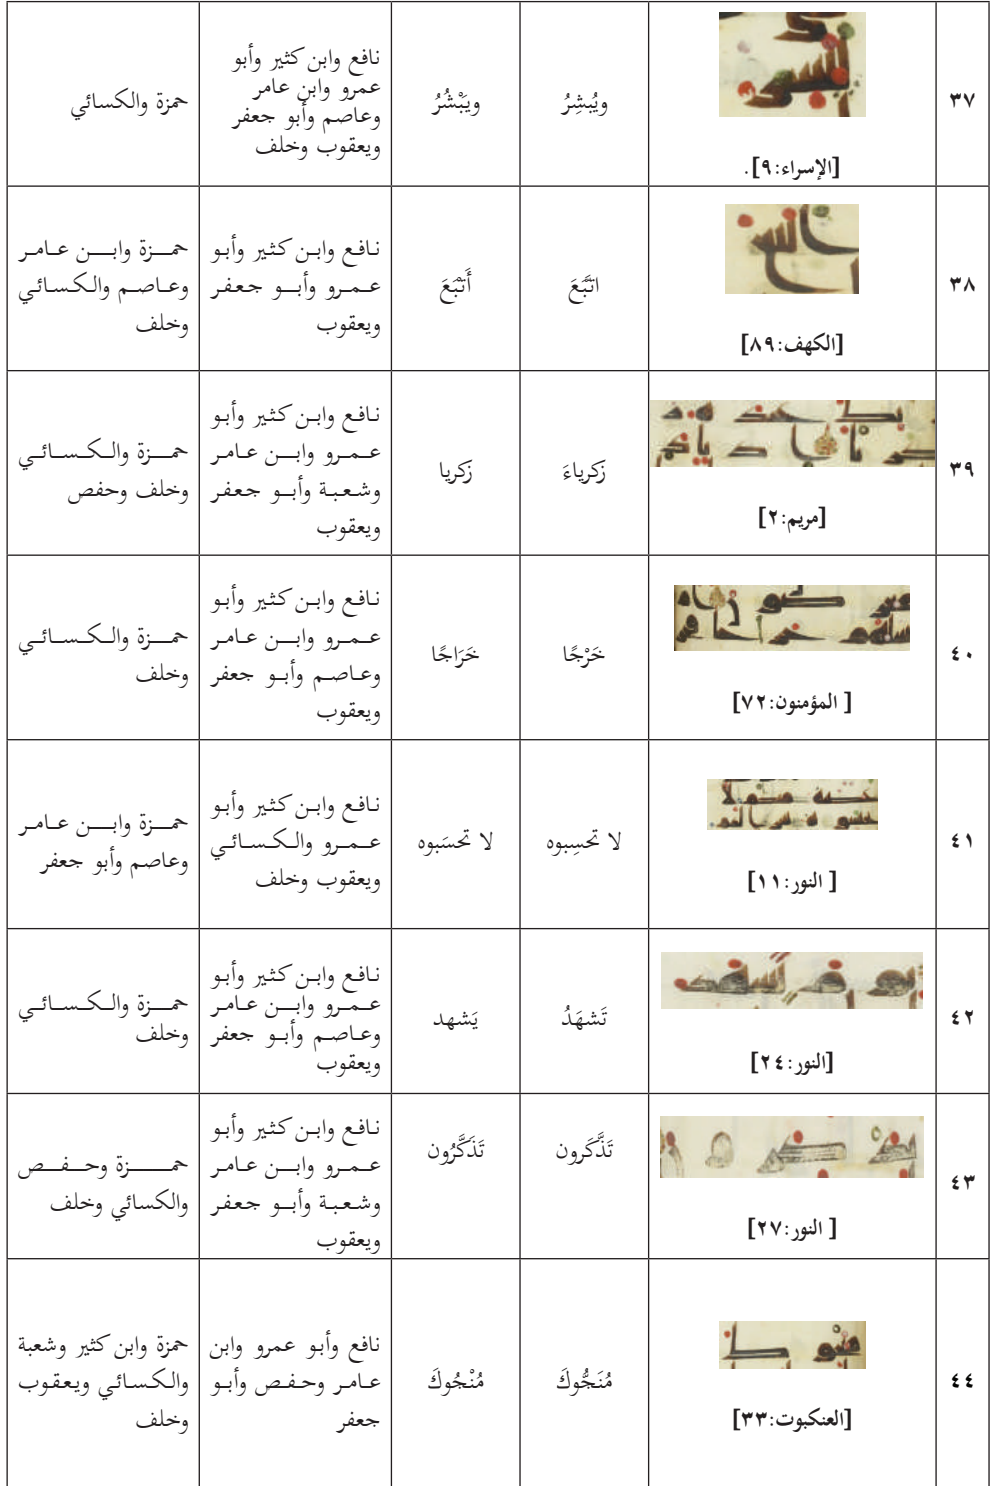 ٣٧
[الإسراء:٩].
ويُبشِرُ
ويَبْشُرُ
نافع وابن كثير وأبو
عمرو وابن عامر
وعاصم وأبو جعفر
ويعقوب وخلف
حمزة والكسائي
٣٨
[الكهف:٨٩]
اتَّبَعَ
أَتْبَعَ
نافع وابن كثير وأبو
عمرو وأبو جعفر
ويعقوب
حمزة وابن عامر
وعاصم والكسائي
وخلف
٣٩
[مريم:٢]
زكرياءَ
زكريا
نافع وابن كثير وأبو
عمرو وابن عامر
وشعبة وأبو جعفر
ويعقوب
حمزة والكسائي
وخلف وحفص
٤٠
[ المؤمنون:٧٢]
خَرْجًا
خَرَاجًا
نافع وابن كثير وأبو
عمرو وابن عامر
وعاصم وأبو جعفر
ويعقوب
حمزة والكسائي
وخلف
٤١
[ النور:١١]
لا تحسِبوه
لا تحسَبوه
نافع وابن كثير وأبو
عمرو والكسائي
ويعقوب وخلف
حمزة وابن عامر
وعاصم وأبو جعفر
٤٢
[النور:٢٤]
تَشهَدُ
يَشهد
نافع وابن كثير وأبو
عمرو وابن عامر
وعاصم وأبو جعفر
ويعقوب
حمزة والكسائي
وخلف
٤٣
[ النور:٢٧]
تَذَّكَرون
تَذَكَّرُون
نافع وابن كثير وأبو
عمرو وابن عامر
وشعبة وأبو جعفر
ويعقوب
حمزة وحفص
والكسائي وخلف
٤٤
[العنكبوت:٣٣]
مُنَجُّوكَ
مُنْجُوكَ
نافع وأبو عمرو وابن
عامر وحفص وأبو
جعفر
حمزة وابن كثير وشعبة
والكسائي ويعقوب
وخلف